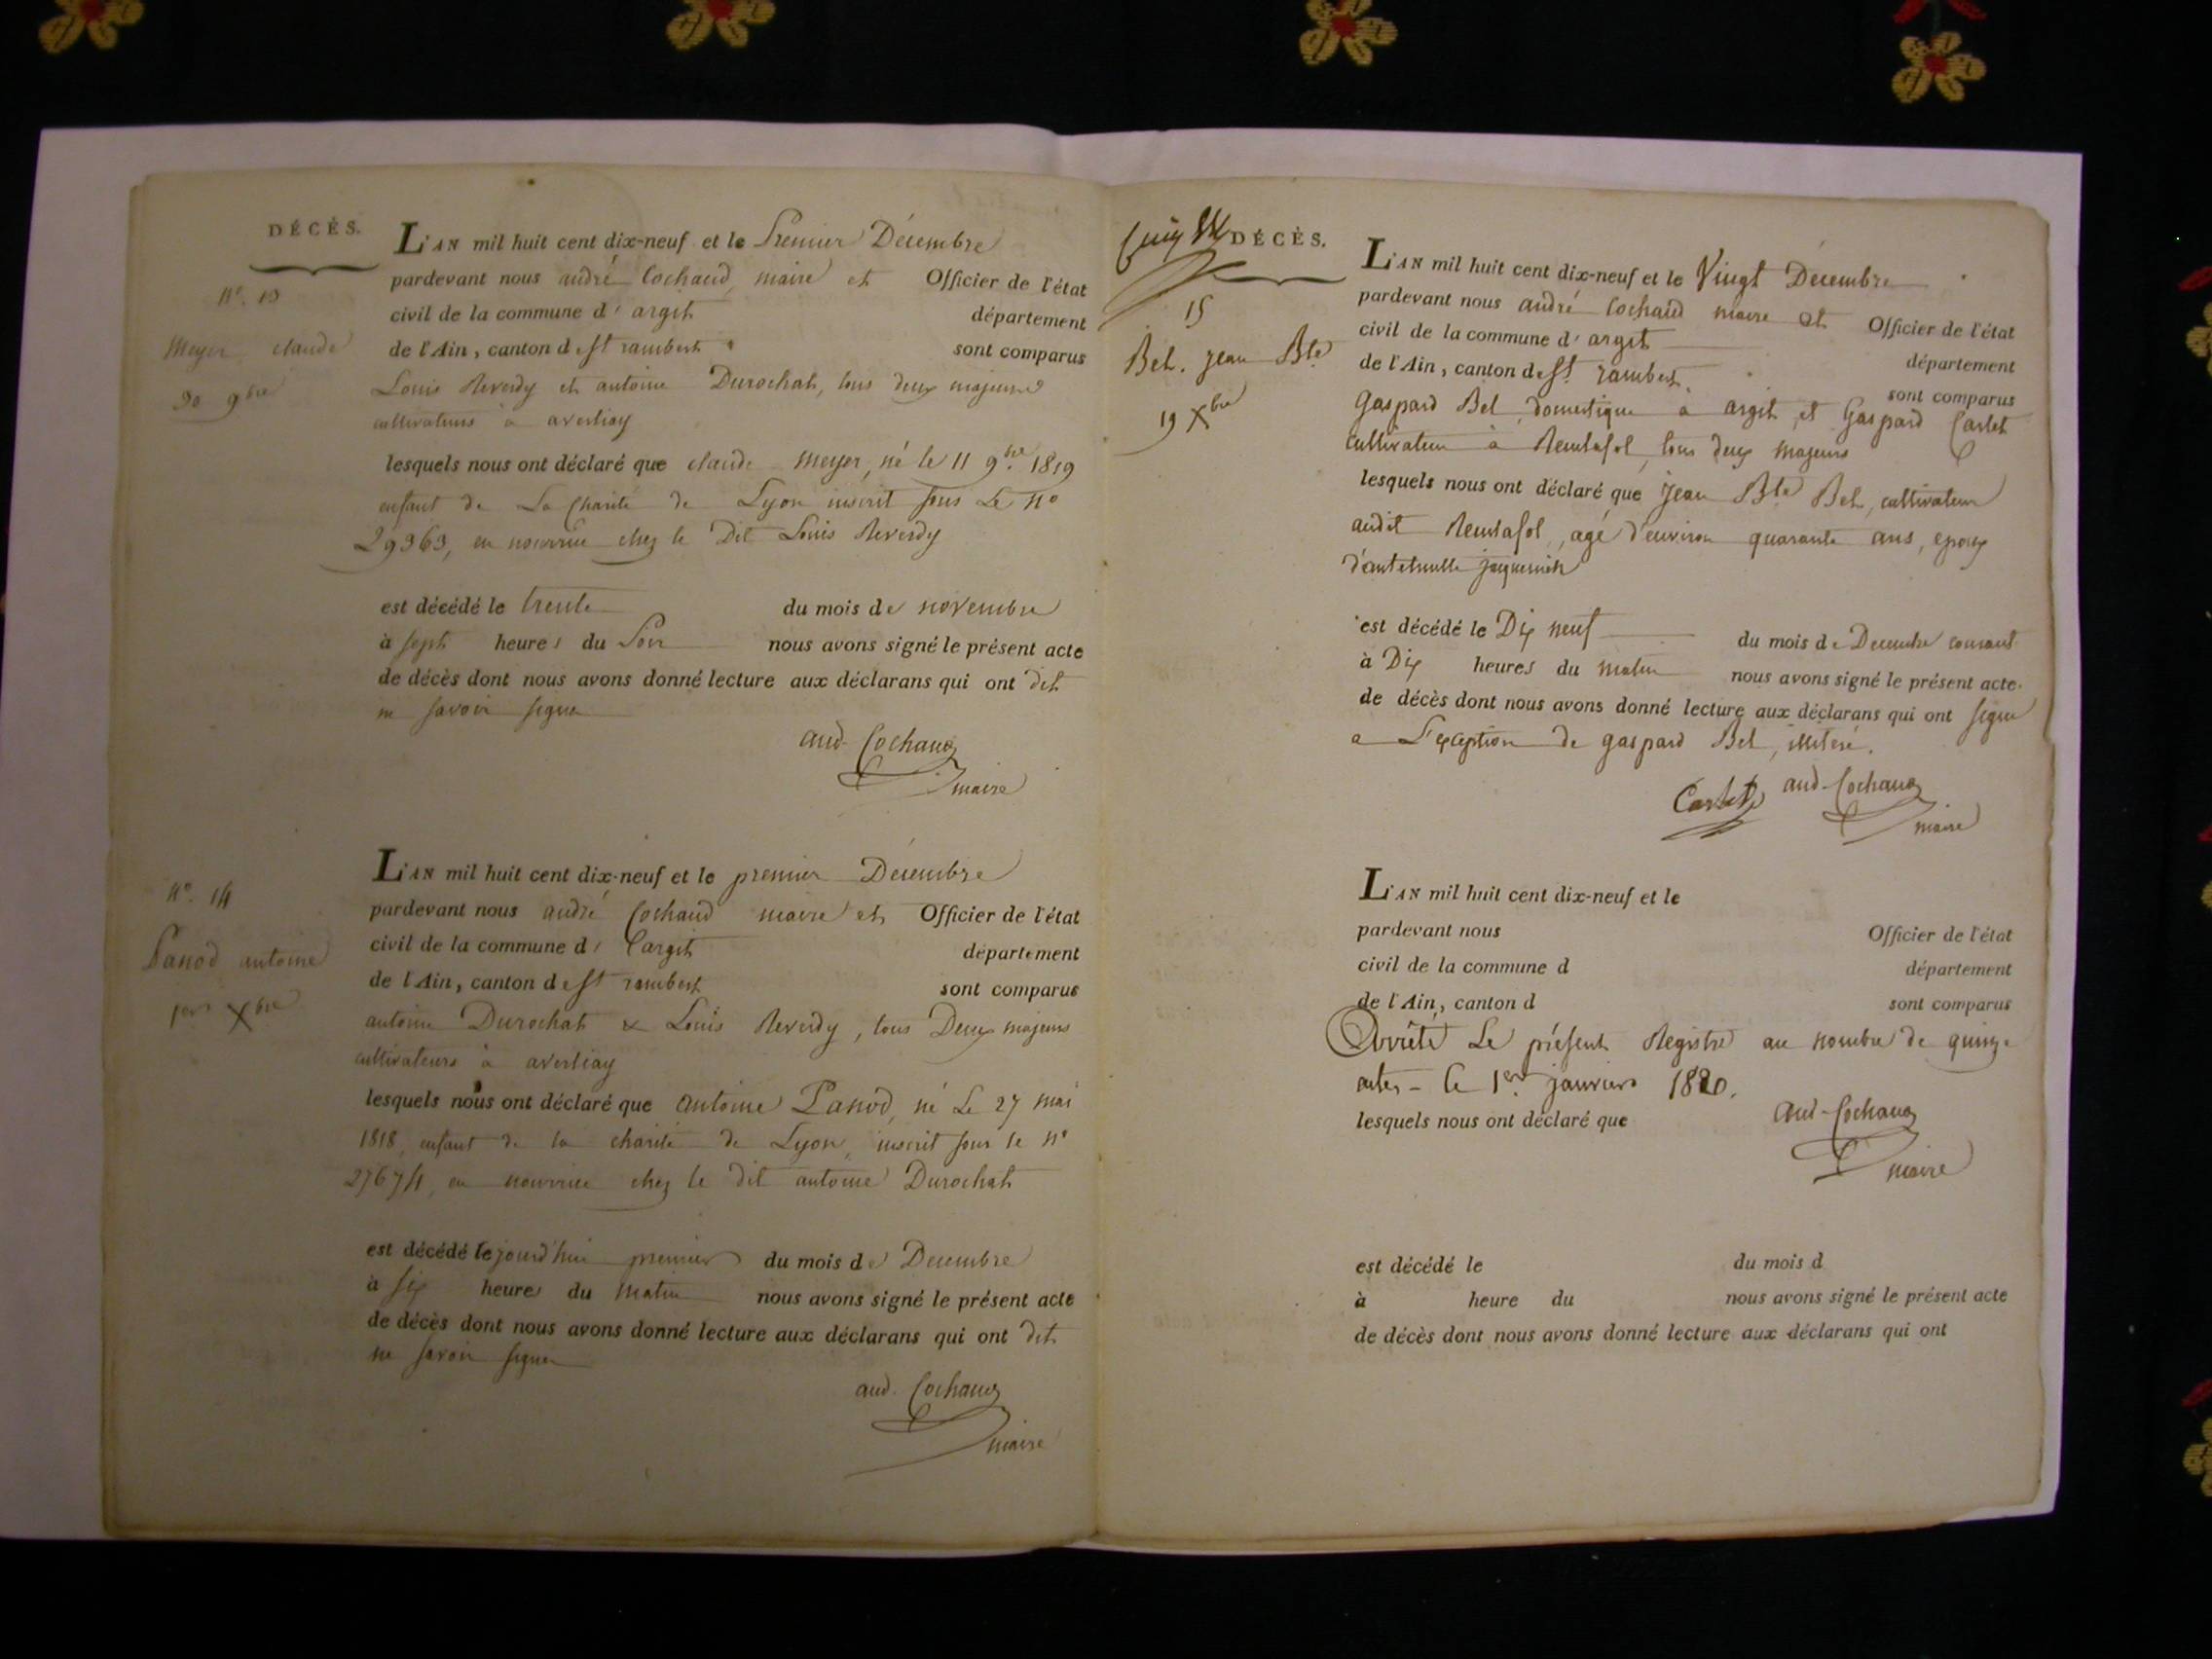 DÉCÈS.
N°. 13
Meyer claude
30 9bre
L'AN mil huit cent dix-neuf et le Premier Décembre
pardevant nous andré Cochaud, maire et Officier de l'état
civil de la commune d' argit département
de l'Ain, canton de St rambert sont comparus
Louis Reverdy et antoine Durochat, tous deux majeurs
cultivateurs à averliay
lesquels nous ont déclaré que claude Meyer, né le 11 9bre 1819
enfant de La Charité de Lyon inscrit sous Le N°
29363, en nourrice chez le Dit Louis Reverdy
est décédé le trente du mois de novembre
à sept heures du Soir nous avons signé le présent acte
de décès dont nous avons donné lecture aux déclarans qui ont dit
ne savoir signer
and. Cochaud
maire
N°. 14
Panod antoine
1er Xbre
L'AN mil huit cent dix-neuf et le premier Décembre
pardevant nous andré Cochaud maire et Officier de l'état
civil de la commune d' argit département
de l'Ain, canton de St rambert sont comparus
antoine Durochat & Louis Reverdy, tous Deux majeurs
cultivateurs à averliay
lesquels nous ont déclaré que antoine Panod, né Le 27 mai
1818, enfant de la charité de Lyon, inscrit sous le N°
27674, en nourrice chez le dit antoine Durochat
est décédé lejourd'hui premier du mois de Décembre
à six heures du Matin nous avons signé le présent acte
de décès dont nous avons donné lecture aux déclarans qui ont dit
ne savoir signer
and. Cochaud
maire
DÉCÈS.
15
Bel. Jean Bte
19 Xbre
L'AN mil huit cent dix-neuf et le Vingt Décembre
pardevant nous andré Cochaud maire et Officier de l'état
civil de la commune d' argit département
de l'Ain, canton de St. rambert. sont comparus
Gaspard Bel domestique à argit, et Gaspard Carlet
cultivateur à Reculafol, tous deux majeurs
lesquels nous ont déclaré que Jean Bte Bel, cultivateur
audit Reculafol, agé d'environ quarante ans, epoux
est décédé le Dix neuf du mois de Decembre courant
à Dix heures du matin nous avons signé le présent acte
de décès dont nous avons donné lecture aux déclarans qui ont signé
a L'exception de gaspard Bel, illiteré.
Carlet and. Cochaud
maire
L'AN mil huit cent dix-neuf et le
pardevant nous Officier de l'état
civil de la commune d département
de l'Ain, canton d sont comparus
Arrêté Le présent Registre au nombre de quinze
actes - le 1er. janvier 1820.
lesquels nous ont déclaré que
and. Cochaud
maire
est décédé le du mois d
à heure du nous avons signé le présent acte
de décès dont nous avons donné lecture aux déclarans qui ont